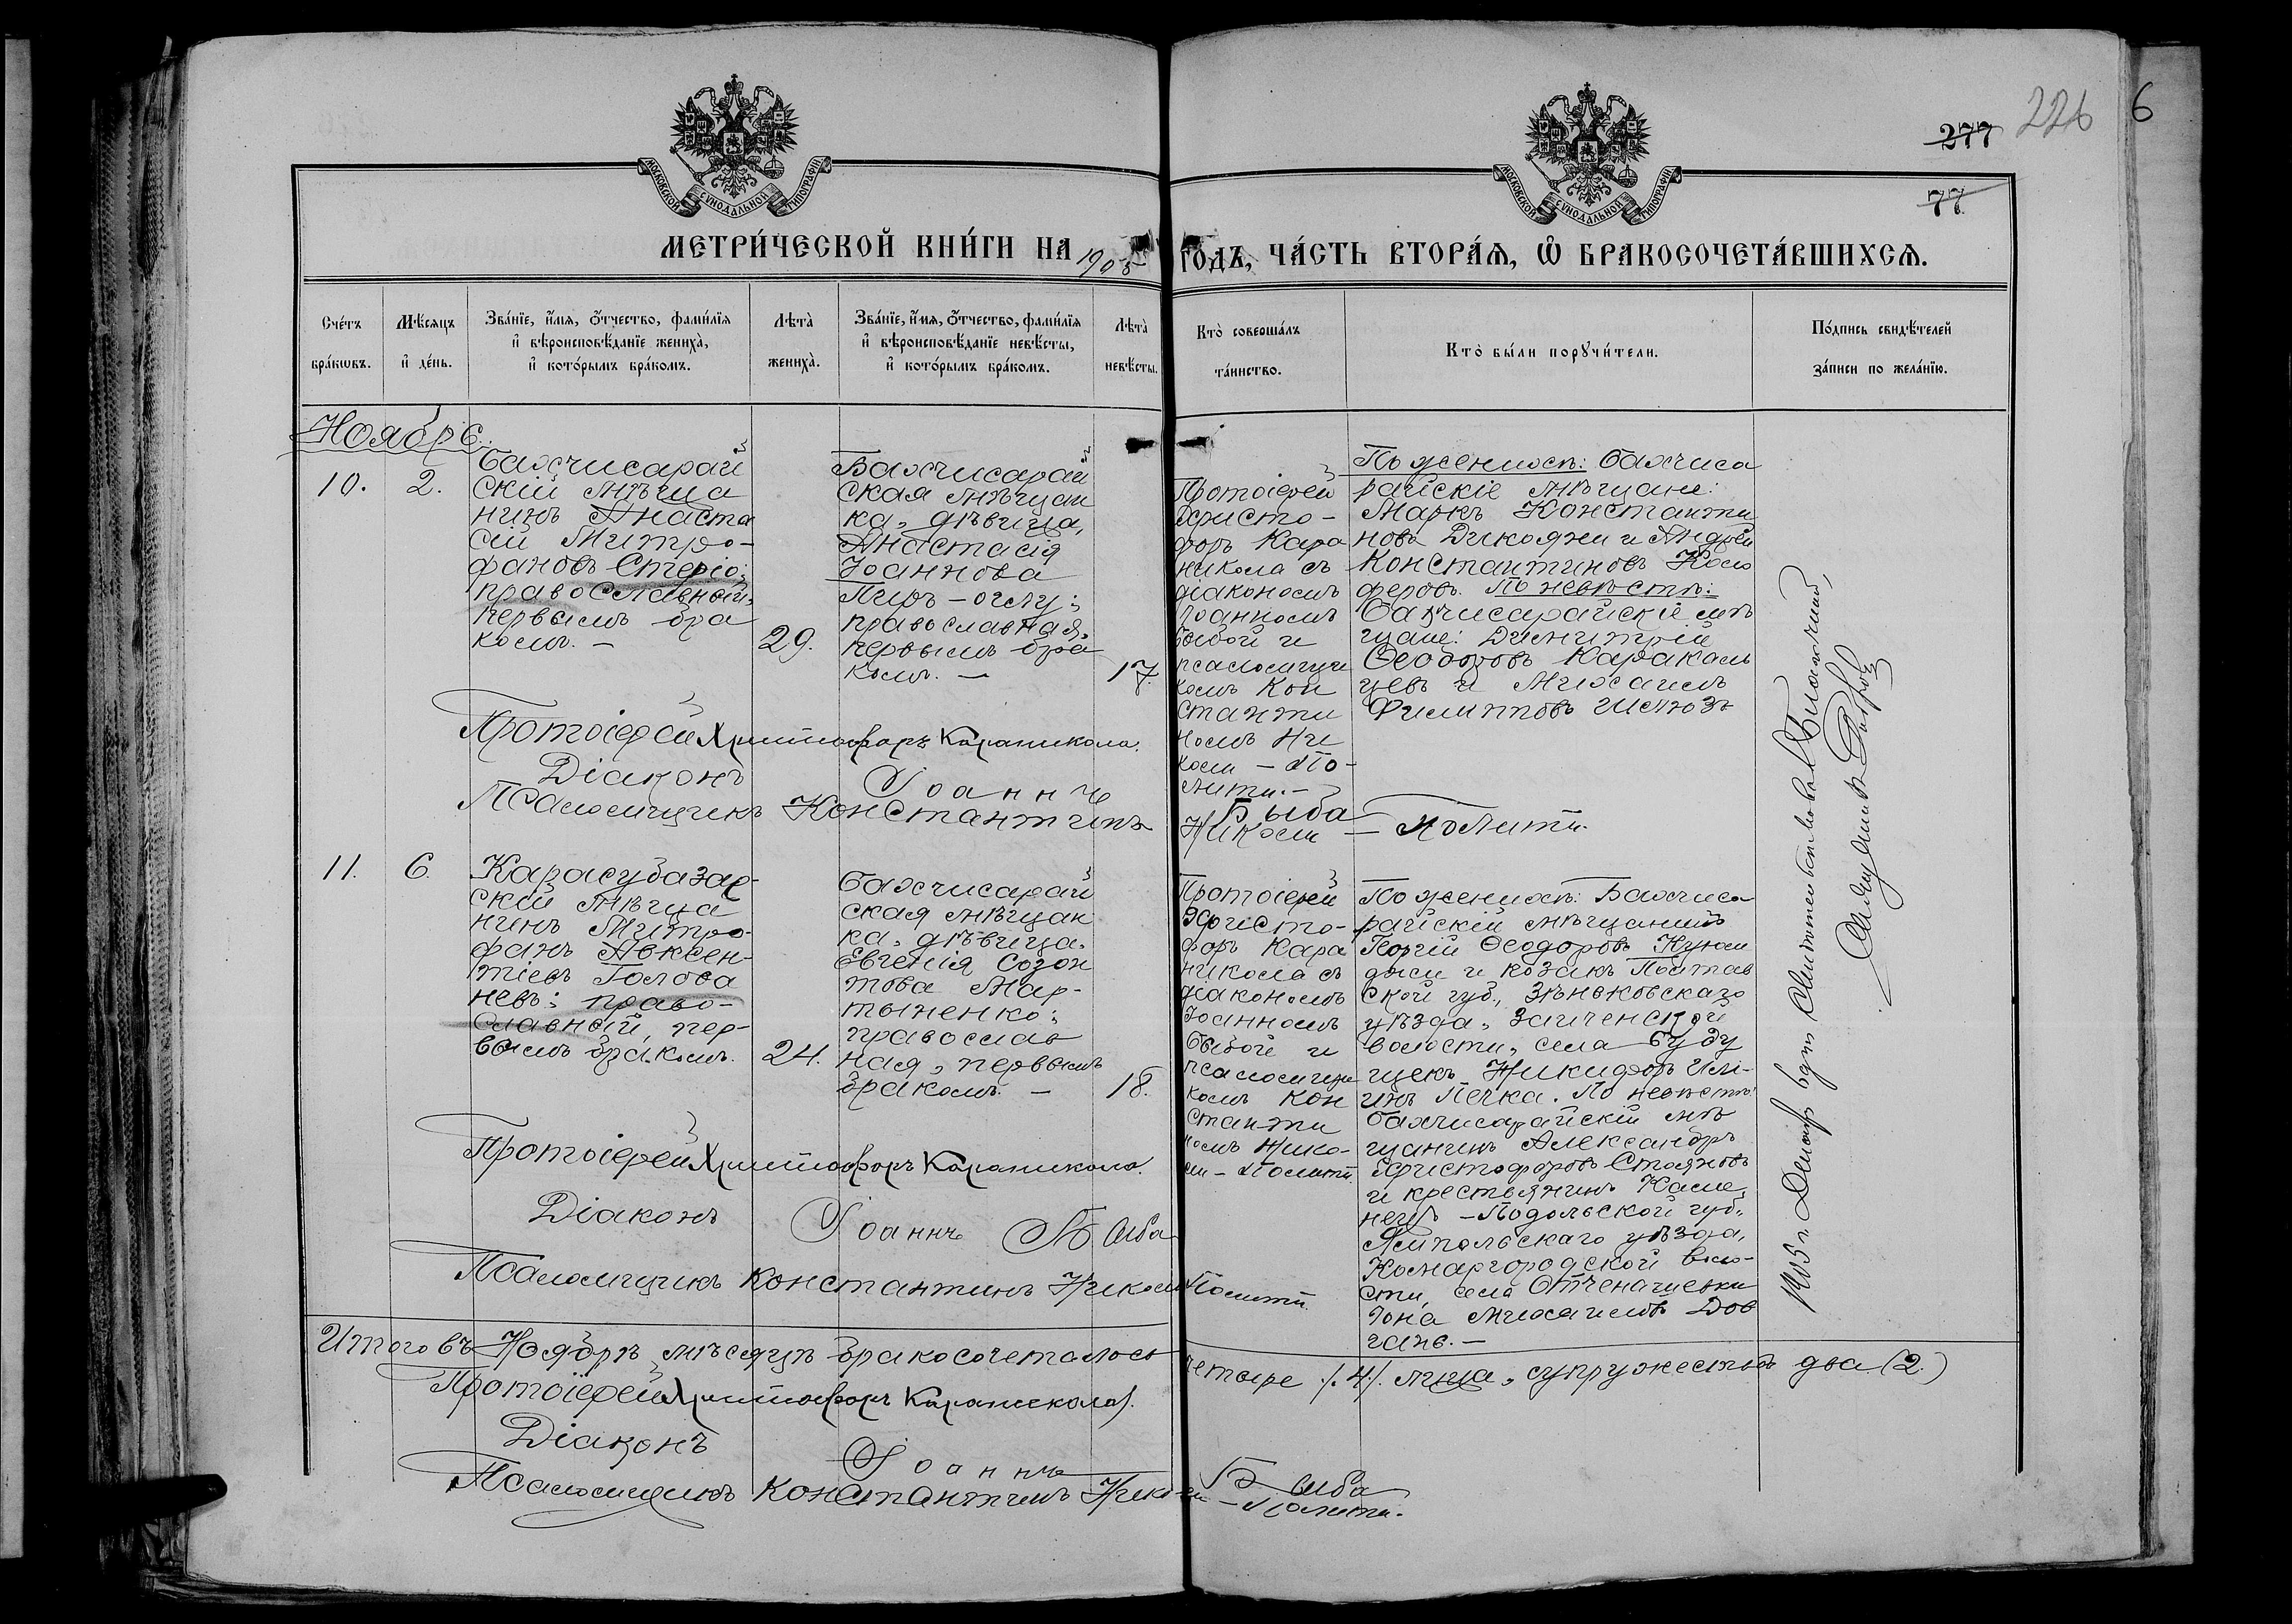 277 226 6
77
МОСКОВСКОЙ СУНОДАЛЬНОЙ ТИПОГРАФІИ
МОСКОВСКОЙ СУНОДАЛЬНОЙ ТИПОГРАФІИ
МЕТРИ́ЧЕСКОЙ КНИ́ГИ НА 1905 ГОДЪ, ЧА́СТЬ ВТОРА́Ѧ, Ѽ БРАКОСОЧЕТА́ВШИХСѦ.
Сче́тъ
бра́кѡвъ.
Мѣ́сѧцъ
и҆ де́нь.
Зва́нїе, и҆́мѧ, ѻ҆́тчество, фами́лїѧ
и҆ вѣроисповѣ́данїе жениха̀,
и҆ кото́рымъ бра́комъ.
Лѣта̀
жениха̀.
Зва́нїе, и҆́мѧ, ѻ҆́тчество, фами́лїѧ
и҆ вѣроисповѣ́данїе невѣ́сты,
и҆ кото́рымъ бра́комъ.
Лѣта̀
невѣ́сты.
Кто̀ соверша́лъ
та́инство.
Кто̀ бы́ли порꙋчи́тели.
По́дпись свидѣ́телей
за́писи по жела́нїю.
Ноябрь.
10.
2.
Бахчисарай
скій мѣща
нинъ Анаста
сій Митро-
фановъ Стеріо;
православный,
первымъ бра
комъ. —
29.
Бахчисарай
ская мѣщан
ка, дѣвица,
Анастасія
Іоаннова
Пиръ-оглу;
православная,
первымъ бра
комъ. —
17.
Протоіерей
Христо-
форъ Кара
никола съ
діакономъ
Іоанномъ
Быбой и
псаломщи
комъ Кон
станти
номъ Ни
коли-По-
лити. —
По женихѣ: Бахчиса
райскіе мѣщане:
Маркъ Константи
новъ и Андрей
Константиновъ
феровъ. По невѣстѣ:
Бахчисарайскіе мѣ
щане: Димитрій
Ѳеодоровъ Каракаш
цевъ и Михаилъ
Филипповъ
Протоіерей Христофоръ Караникола.
Діаконъ Іоаннъ Быба
Псаломщикъ Константинъ Николи-Полити.
11.
6.
Карасубазар-
скій мѣща
нинъ Митро-
фанъ Авксен-
тіевъ Голова
невъ; право-
славный, пер-
вымъ бракомъ.
24.
Бахчисарай
ская мѣщан
ка, дѣвица,
Евгенія Созон
това Мар-
тыненко;
православ
ная, первымъ
бракомъ. —
18.
Протоіерей
Христо-
форъ Кара
никола съ
діакономъ
Іоанномъ
Быбой и
псаломщи
комъ Кон
станти
номъ Нико-
ли-Полити.
По женихѣ: Бахчиса
райскій мѣщанинъ
Георгій Ѳеодоровъ Куюм
джи и козакъ Полтав
ской губ., Зѣньковскаго
уѣзда, Заиченской
волости, села Буду
щекъ Никифоръ Иль-
инъ Печка. По невѣстѣ:
Бахчисарайскій мѣ
щанинъ Александръ
Христофоровъ Стояновъ
и крестьянинъ Каме
нецъ-Подольской губ.
Ямпольскаго уѣзда,
Комаргородской воло-
сти, села
Іона Михаиловъ Дов
гань. —
Протоіерей Христофоръ Караникола.
Діаконъ Іоаннъ Быба
Псаломщикъ Константинъ Николи Полити.
Итого въ Ноябрѣ мѣсяцѣ бракосочеталось четыре /.4/. лица, супружествъ два (2.)
Протоіерей Христофоръ Караникола.
Діаконъ Іоаннъ Быба
Псаломщикъ Константинъ Николи-Полити.